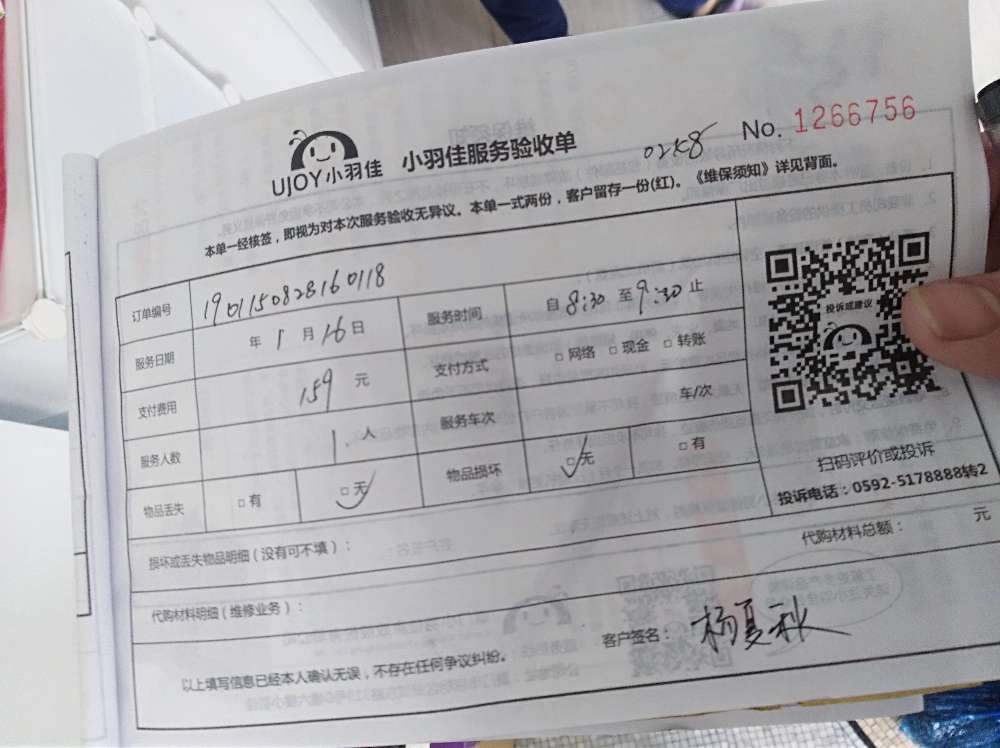 UJOY小羽佳 小羽佳服务验收单 02K8 No. 1266756
本单一经核签，即视为对本次服务验收无异议。本单一式两份，客户留存一份(红)。《维保须知》详见背面。
订单编号 1901150828160118 服务时间 自 8:30 至 9:30 止
服务日期 年 1 月 16 日 支付方式 □ 网络 □ 现金 □ 转账
支付费用 159 元 服务车次 车/次
服务人数 1. 人 物品损坏 □ 无 □ 有
物品丢失 □ 有 □ 无
投诉或建议
扫码评价或投诉
投诉电话：0592-5178888转2
损坏或丢失物品明细（没有可不填）：
代购材料总额： 元
代购材料明细（维修业务）：
客户签名： 杨夏秋
以上填写信息已经本人确认无误，不存在任何争议纠纷。